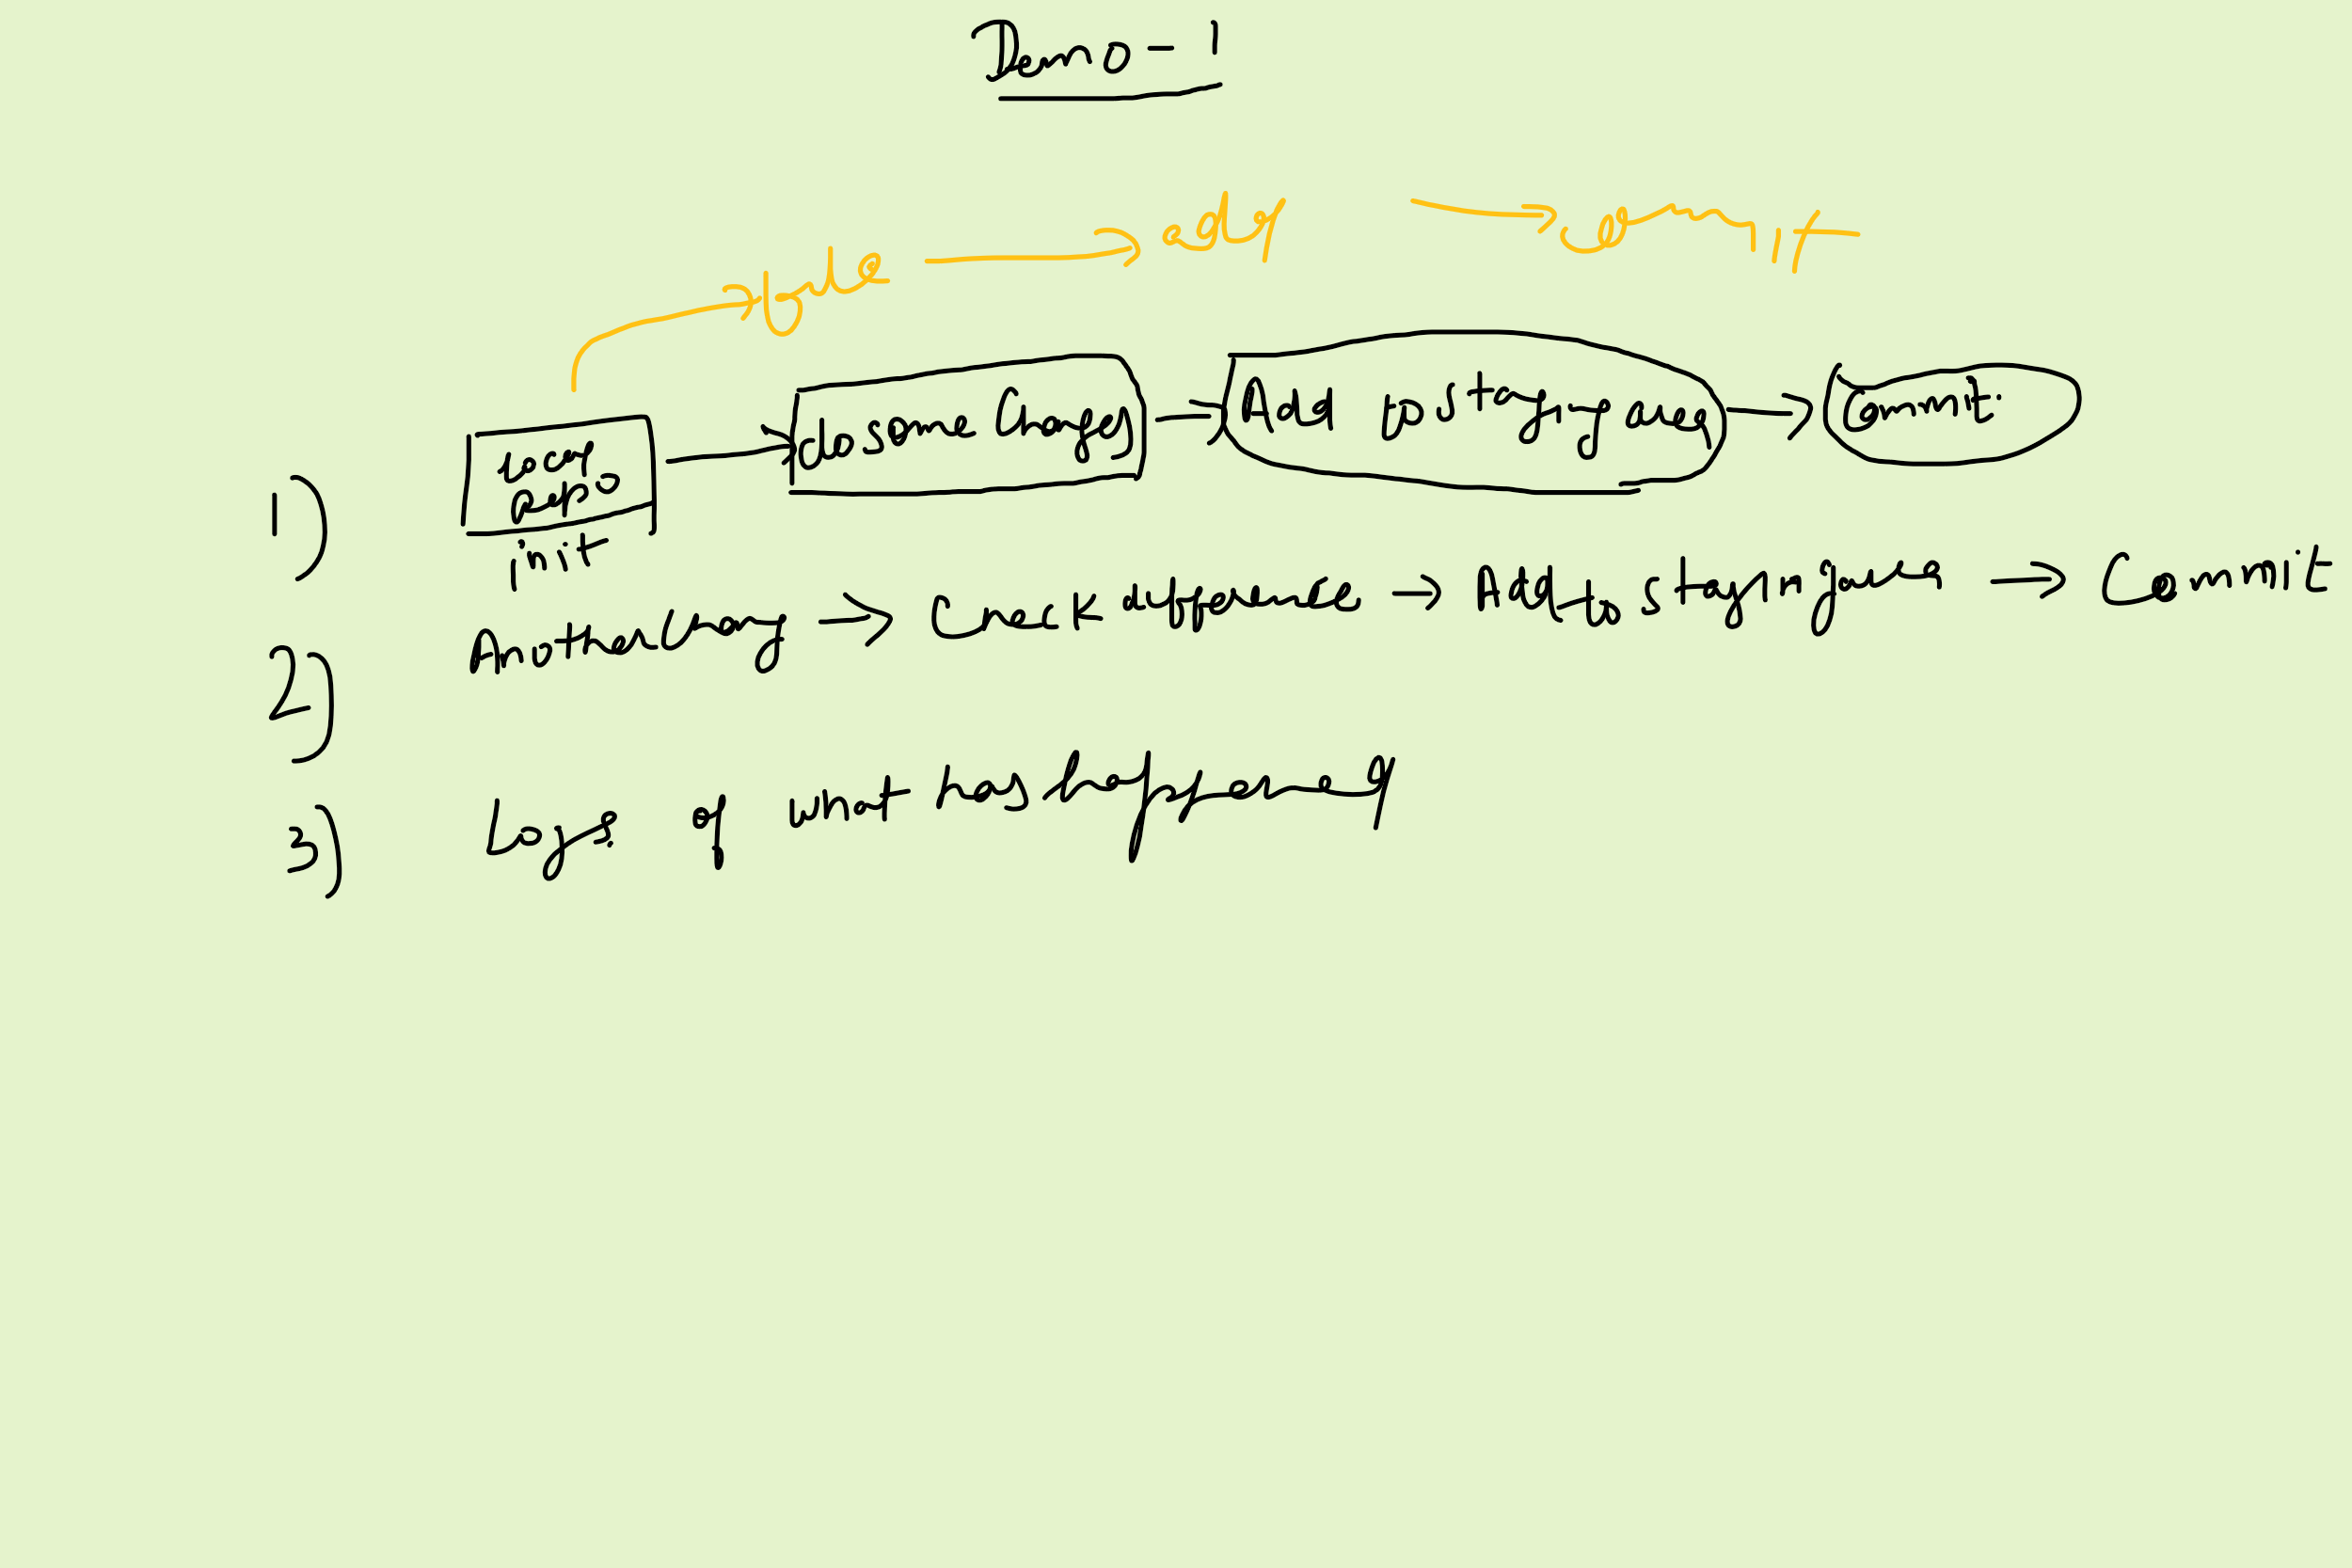 Demo - 1
edit
commit
1)
local
repo
init
do some changes
Add to staging area
Commit
2)
Another change → Check differences → Add to staging area → Commit
3)
Logs of what has happened